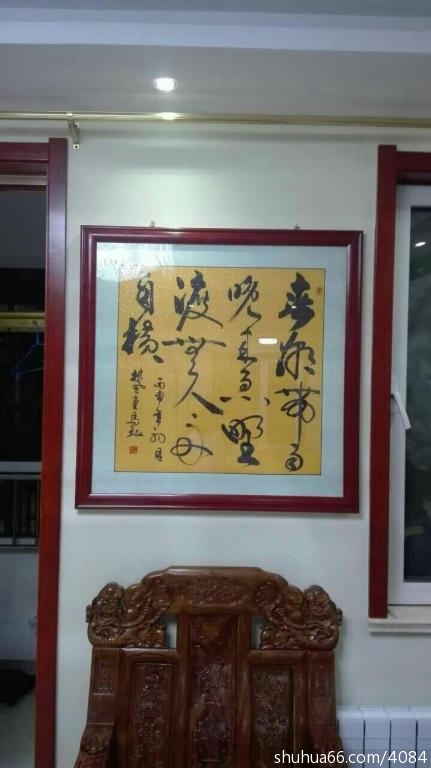 春潮帶雨
晚来急野
渡無人舟
自横
丙申年
shuhua66.com/4084